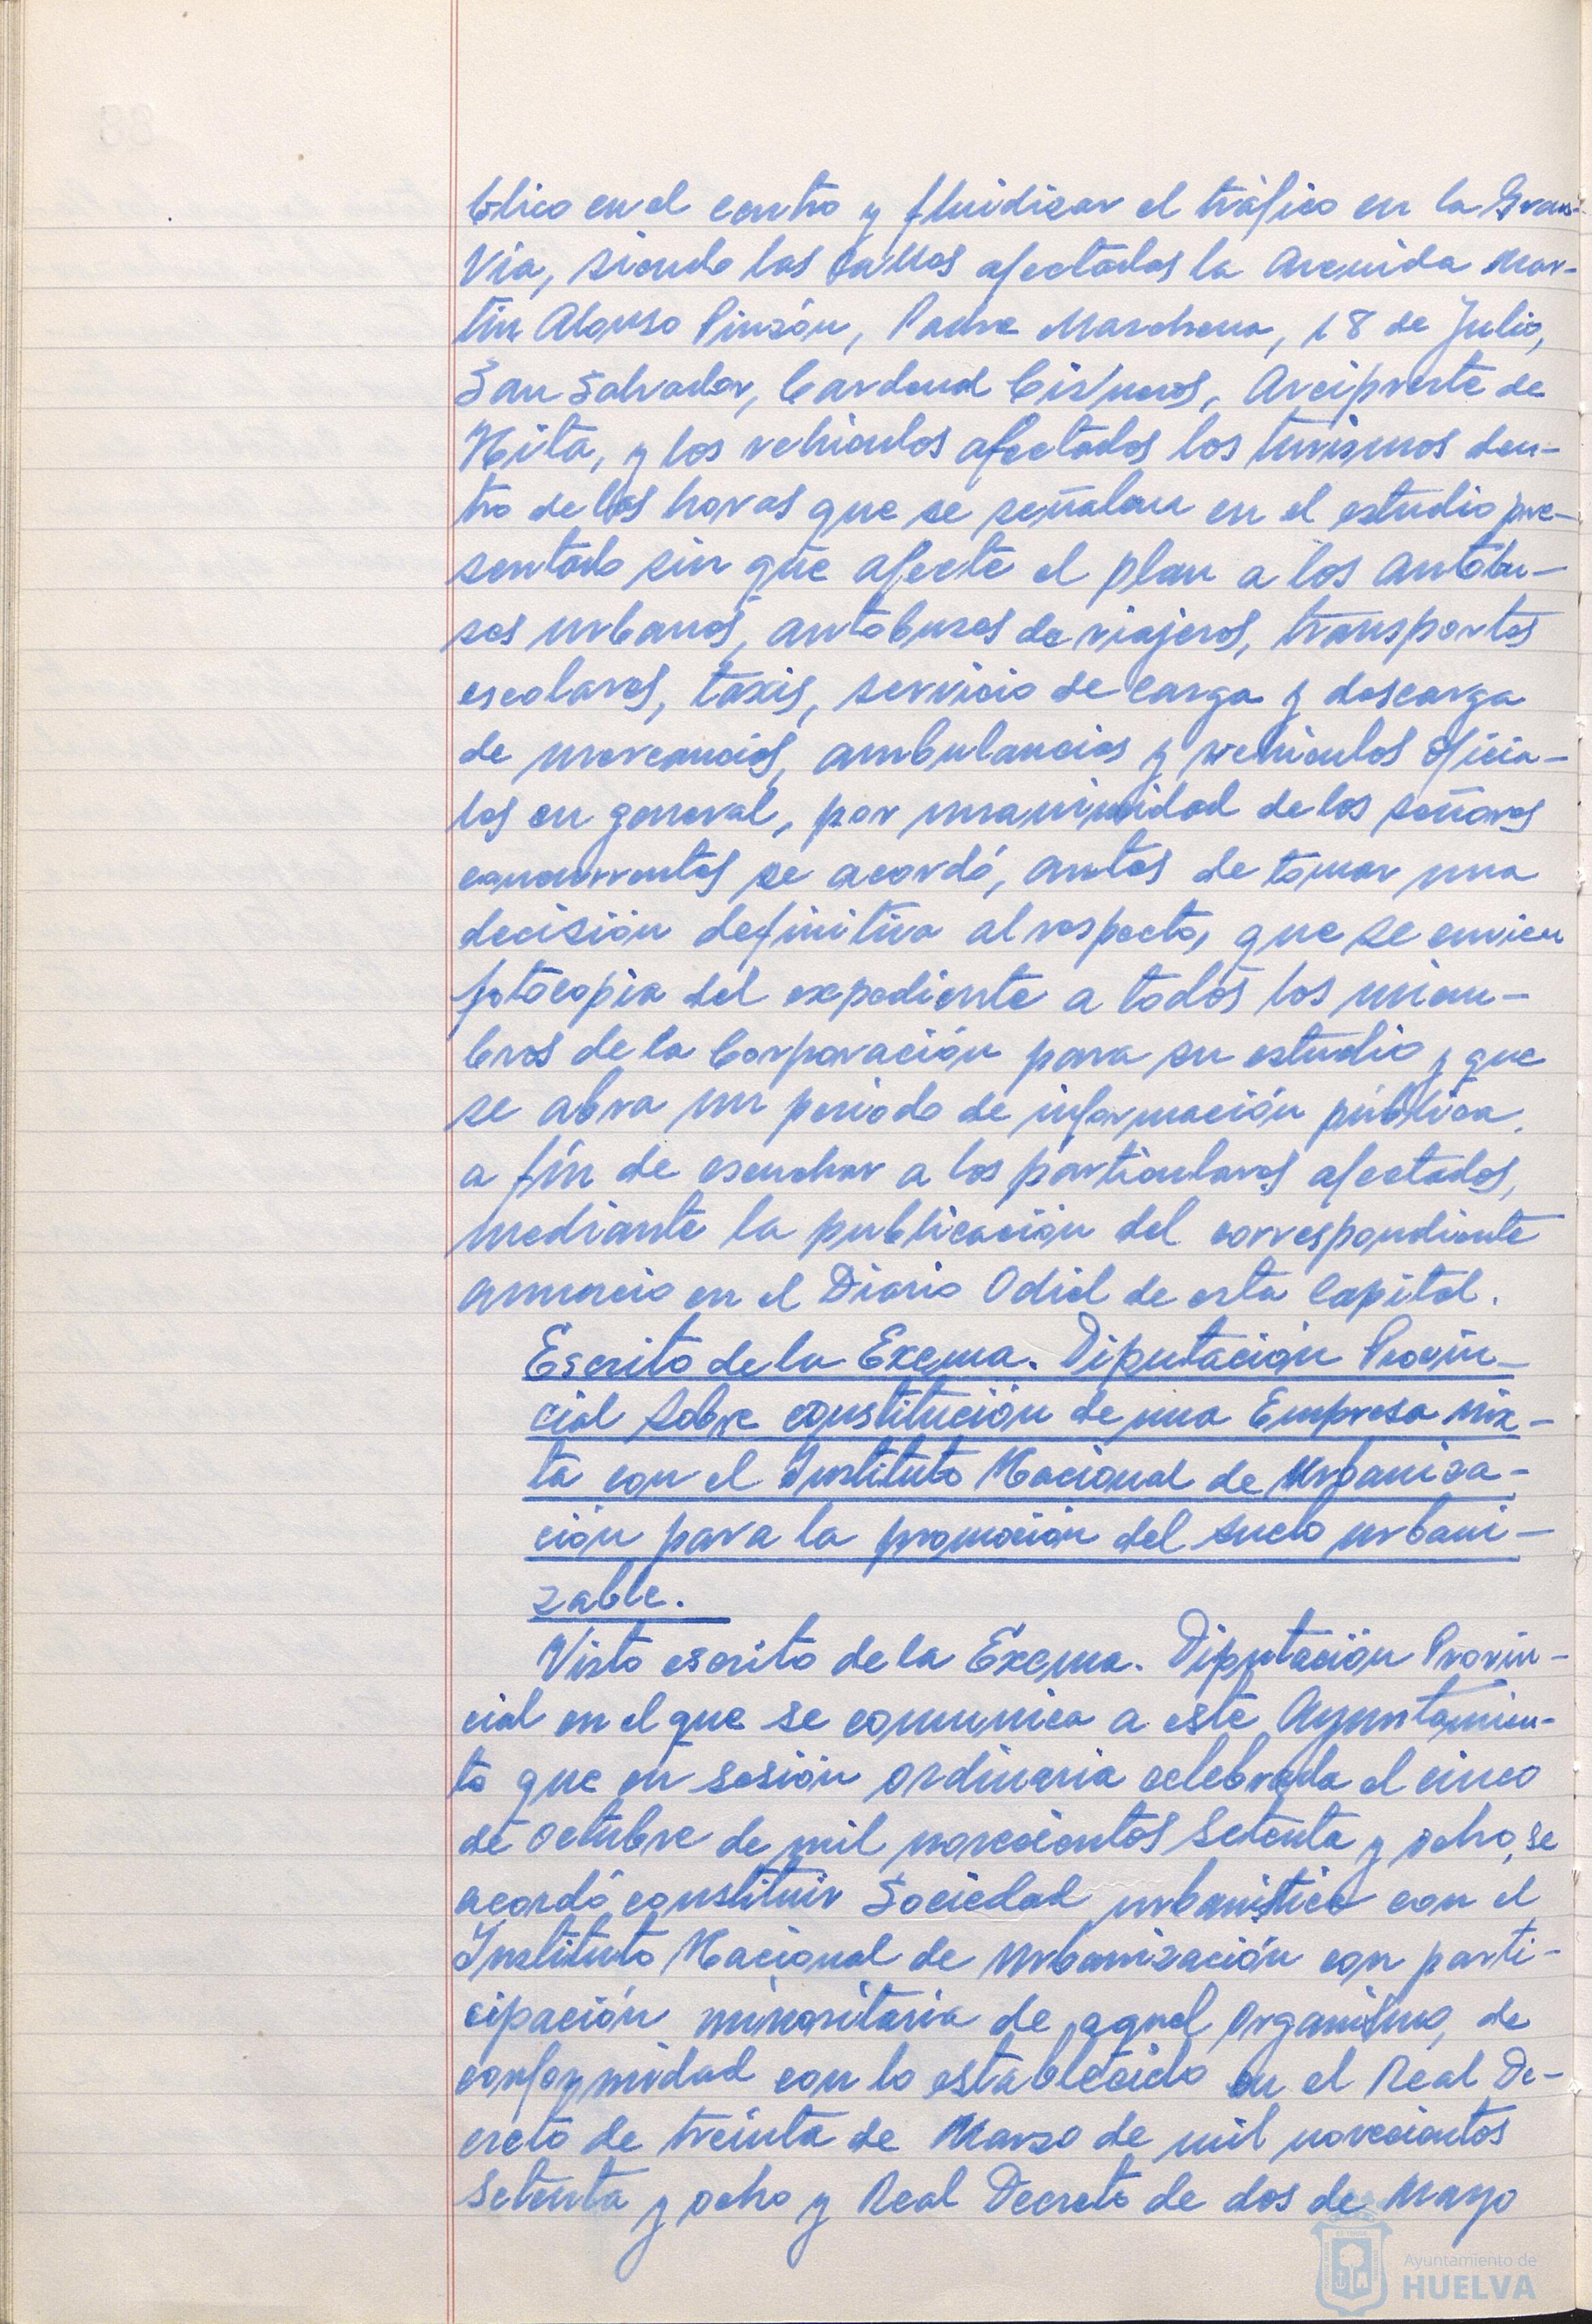 blico en el centro y fluidizar el tráfico en la Gran
Vía, siendo las calles afectadas la Avenida Mar-
tín Alonso Pinzón, Padre Marchena, 18 de Julio,
San Salvador, Cardenal Cisneros, Arcipreste de
Hita, y los vehiculos afectados los turismos den-
tro de las horas que se señalan en el estudio pre-
sentado sin que afecte el plan a los autobu-
ses urbanos, autobuses de viajeros, transportes
escolares, taxis, servicio de carga y descarga
de mercancias, ambulancias y vehiculos oficia-
les en general, por unanimidad de los señores
concurrentes se acordó, antes de tomar una
decisión definitiva al respecto, que se envien
fotocopia del expediente a todos los miem-
bros de la Corporación para su estudio y que
se abra un periodo de información pública,
a fín de escuchar a los particulares afectados,
mediante la publicación del correspondiente
anuncio en el Diario Odiel de esta Capital.
Escrito de la Excma. Diputación Provin-
cial sobre constitución de una Empresa mix-
ta con el Instituto Nacional de Urbaniza-
ción para la promoción del suelo urbani-
zable.
Visto escrito de la Excma. Diputación Provin-
cial en el que se comunica a este Ayuntamien-
to que en sesión ordinaria celebrada el cinco
de octubre de mil novecientos setenta y ocho, se
acordó constituir Sociedad urbanistica con el
Instituto Nacional de Urbanización con parti-
cipación minoritaria de aquel Organismo, de
conformidad con lo establecido en el Real De-
creto de treinta de Marzo de mil novecientos
setenta y ocho y Real Decreto de dos de Mayo
Ayuntamiento de
HUELVA